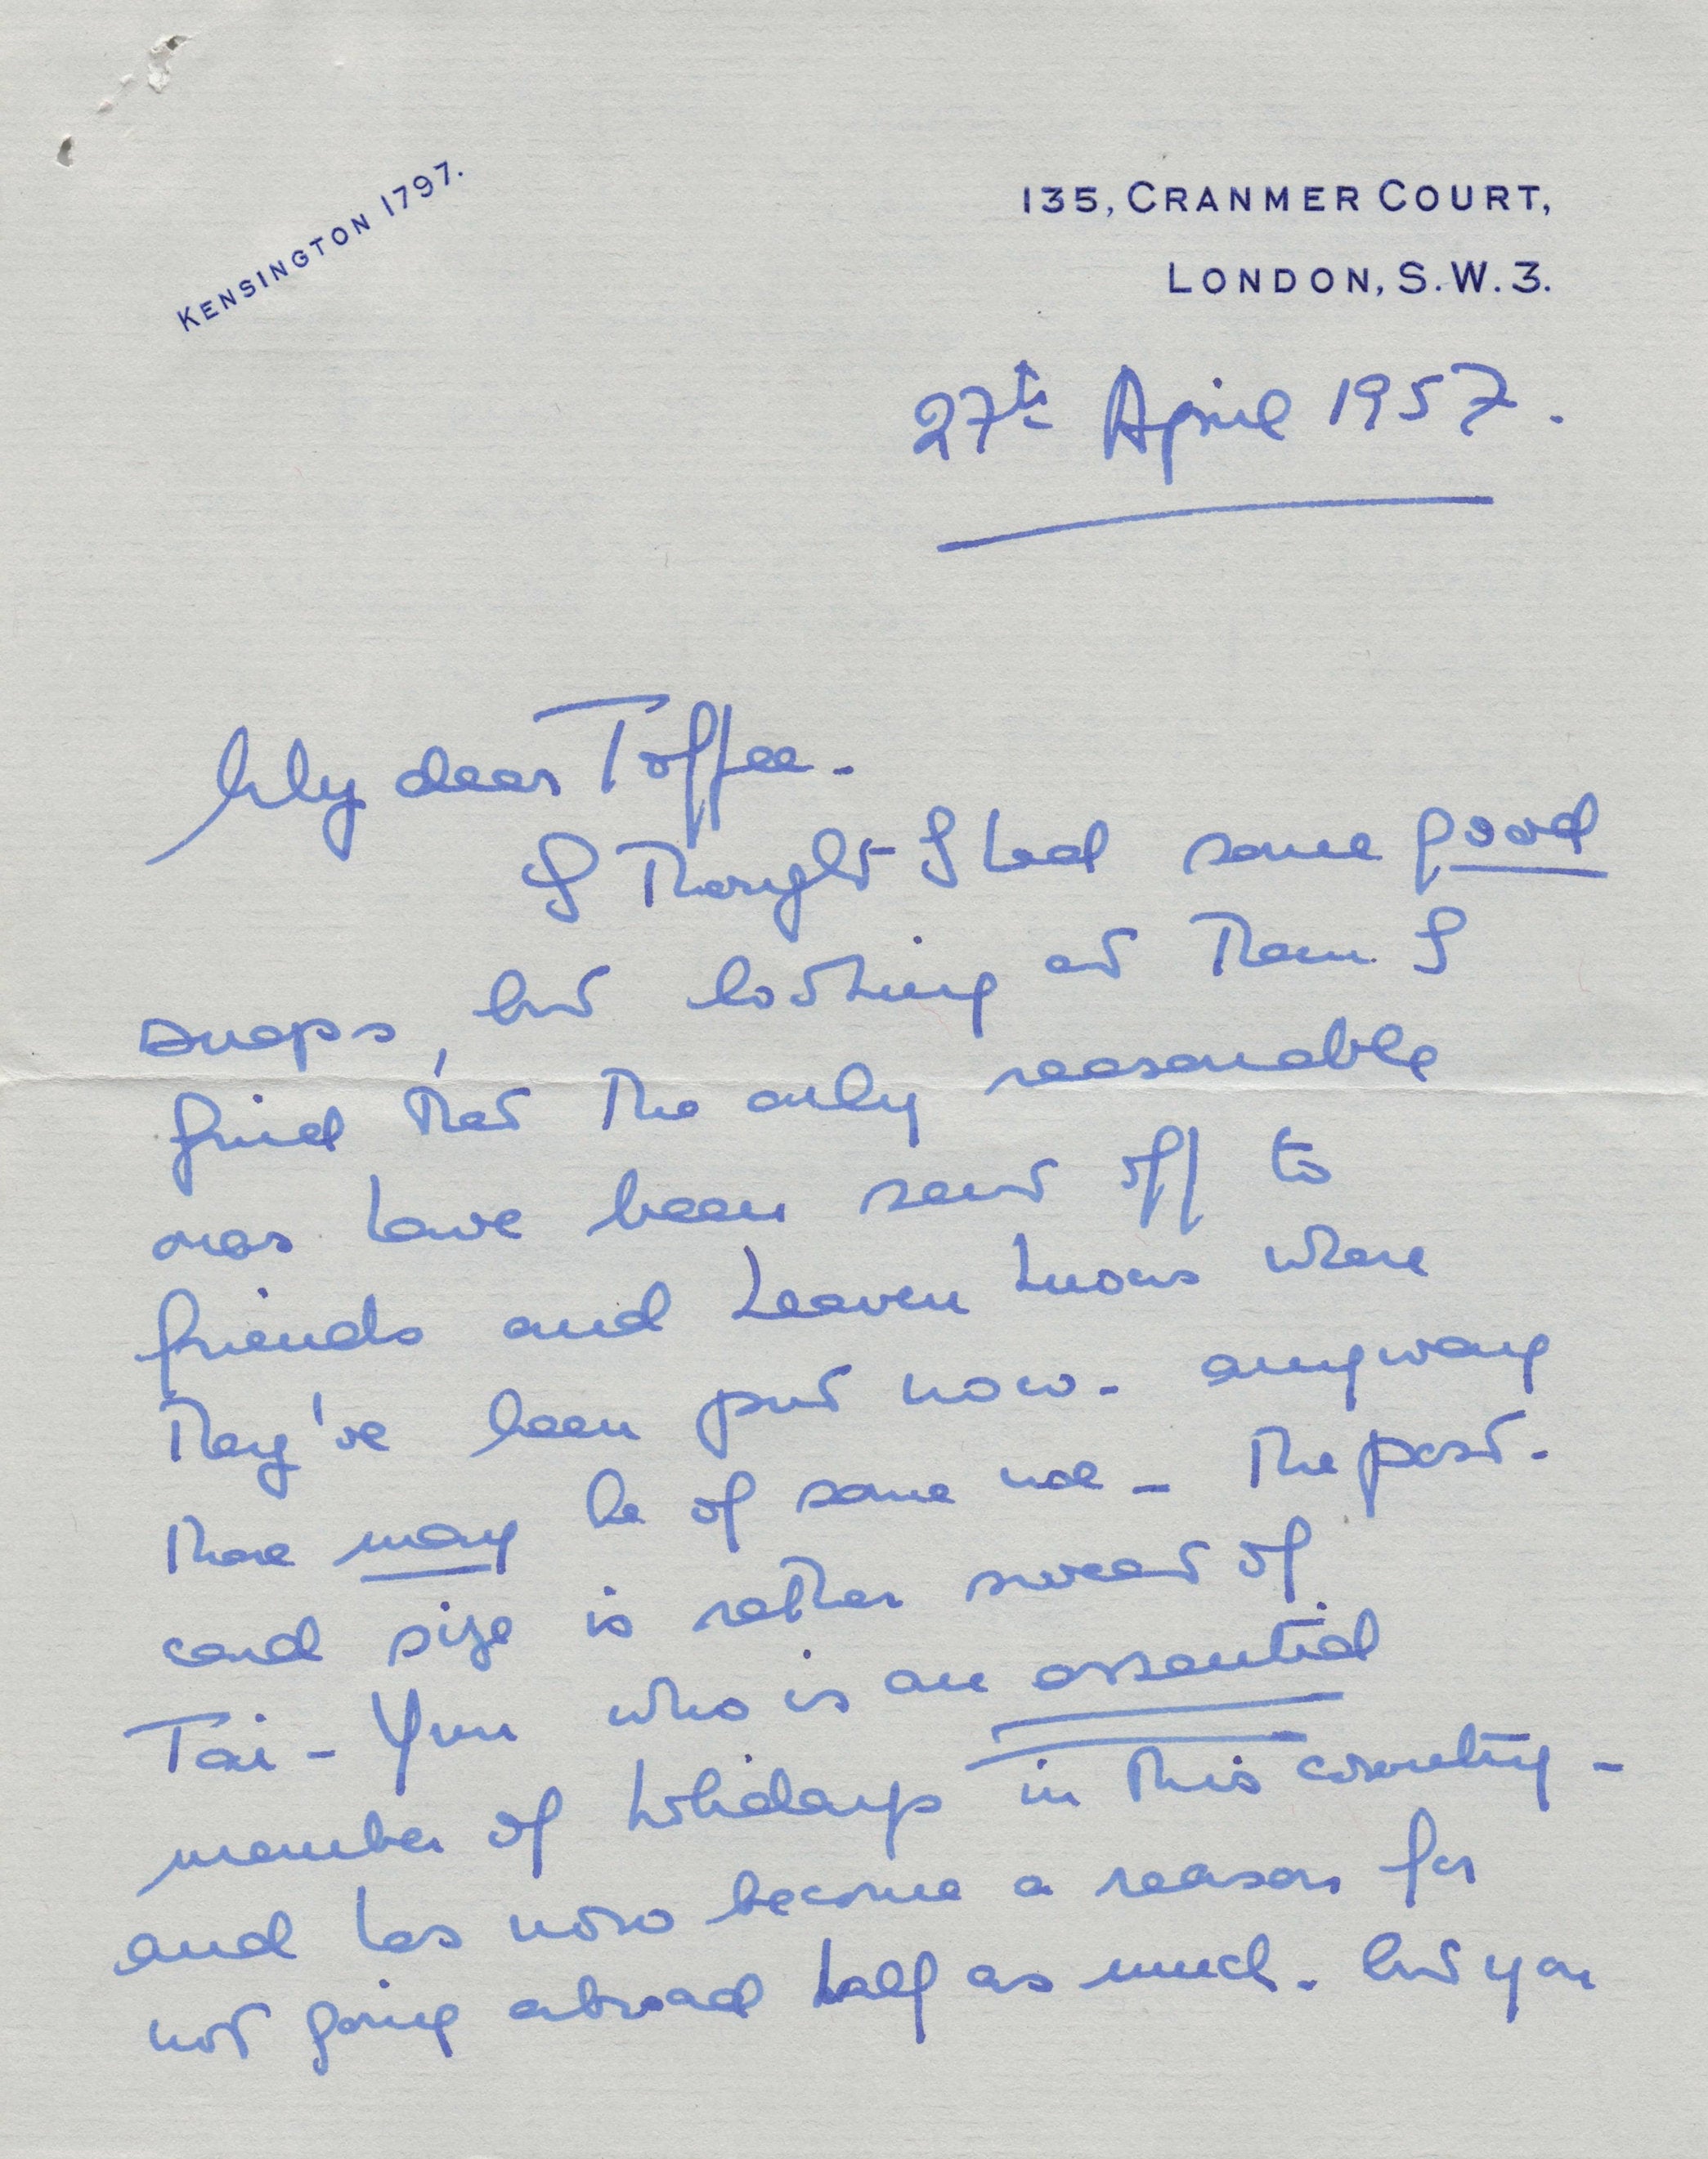 KENSINGTON 1797.
135, CRANMER COURT,
LONDON, S.W.3.
27th April 1957.
My dear Toffee.
I thought I had some good
snaps, but looking at them I
find that the only reasonable
ones have been sent off to
friends and heaven knows where
they've been put now. anyway
these may be of some use - The post.
card size is rather sweet of
Tai-Yuu who is an essential
member of holidays in this country -
and has now become a reason for
not going abroad half as much. but you